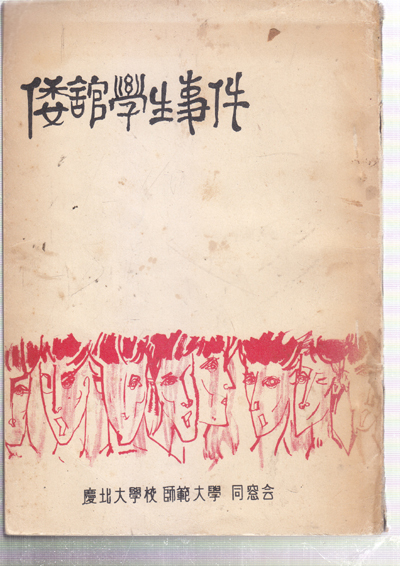 倭舘學生事件
慶北大學校 師範大學 同窓会